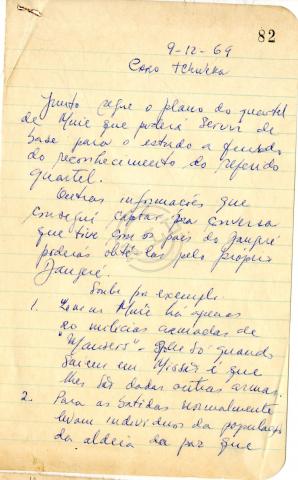 82
9-12-69
Caro Tchukka
Junto segue o plano do quartel
de Muié que poderá servir de
base para o estudo a quando
do reconhecimento do referido
quartel.
Outras informações que
consegui captar pela conversa
que tive com os pais do Jangué
poderás obtê-las pelo próprio
Jangué.
Soube por exemplo
1. em Muié há apenas
20 milícias armadas de
"Mausers" - só quando
saiem em missão é que
lhes são dadas outras armas.
2. Para as batidas normalmente
levam indivíduos da população
da aldeia da paz que